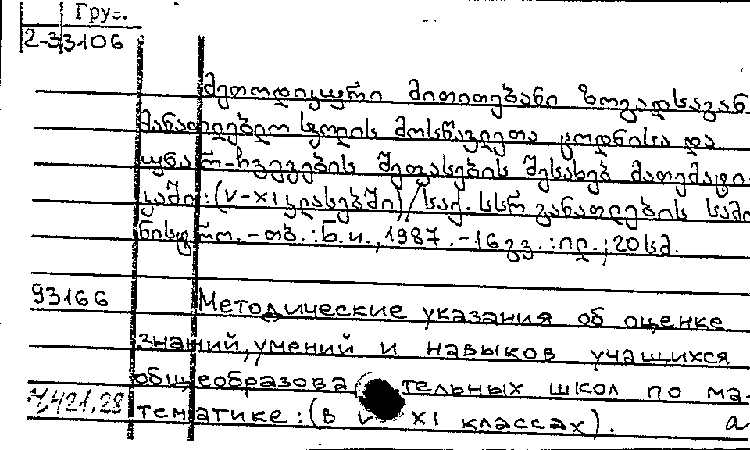 Груз.
2-33106
მეთოდიკური მითითებანი ზოგადსაგან
მანათლებლო სკოლის მოსწავლეთა ცოდნისა და
უნარ-ჩვევების შეფასების შესახებ მათემატი-
კაში: (V-XI კლასებში) / საქ. სსრ განათლების სამი
ნისტრო. - თბ.: ბ.ი., 1987. - 16 გვ. : ილ. ; 20 სმ.
93166 Методические указания об оценке
знаний, умений и навыков учащихся
общеобразовательных школ по ма-
4421.28 тематике: (в V XI классах).